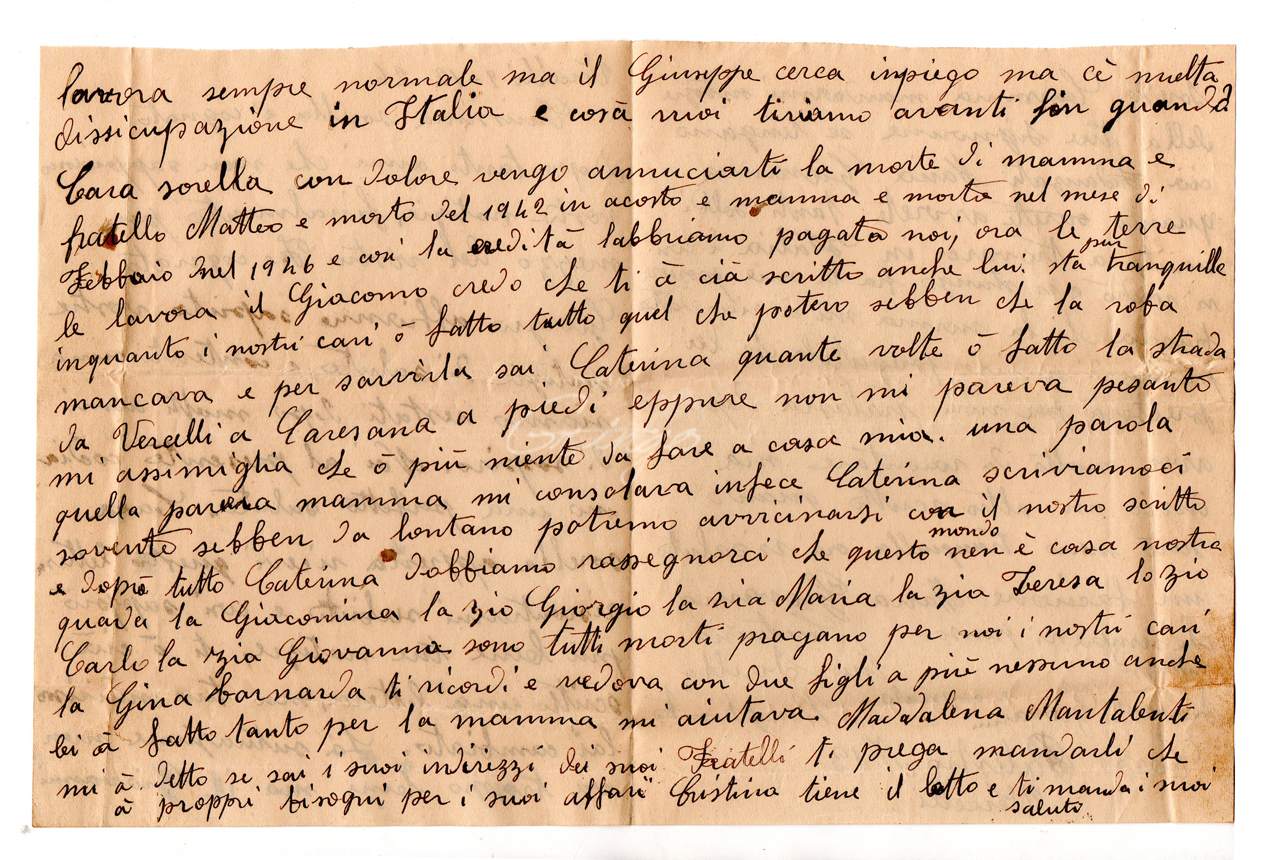 lavora sempre normale ma il Giuseppe cerca inpiego ma cè muelta
dissicupazione in Italia e cosà noi tiriamo avanti fin quando
Cara sorella con dolore vengo annuciarti la morte di mamma e
fratello Matteo e morto del 1942 in acosto e mamma e morta nel mese di
Febbaio nel 1946 e cosi la eredità labbiamo pagata noi, ora le terre
le lavora il Giacomo credo che ti à cià scritto anche lui. sta pur tranquille
inquanto i nostri cari ò fatto tutto quel che potevo sebben che la roba
mancava e per sarvirla sai Caterina quante volte ò fatto la strada
da Vercelli a Caresana a piedi eppure non mi pareva pesante
mi assimiglia che ò più niente da fare a casa mia. una parola
quella pavera mamma mi consolava infece Caterina scriviamoci
sovente sebben da lontano potremo avvicinarsi con il nostro scritto
e dopo tutto Caterina dobbiamo rassegnorci che questo mondo non è casa nostra
quada la Giacomina la zio Giorgio la zia Maria la zia Teresa lo zio
Carlo la zia Giovanna sono tutti morti pragano per noi i nostri cari
la Gina barnarda ti ricordi e vedova con due figli a più nessuno anche
lei à fatto tanto per la mamma mi aiutava. Maddalena Mantalenti
mi à detto se sai i suoi indirezzi dei suoi Fratelli ti prega mandarli che
à proppri bisogni per i suoi affari Cristina tiene il letto e ti manda i suoi
saluto